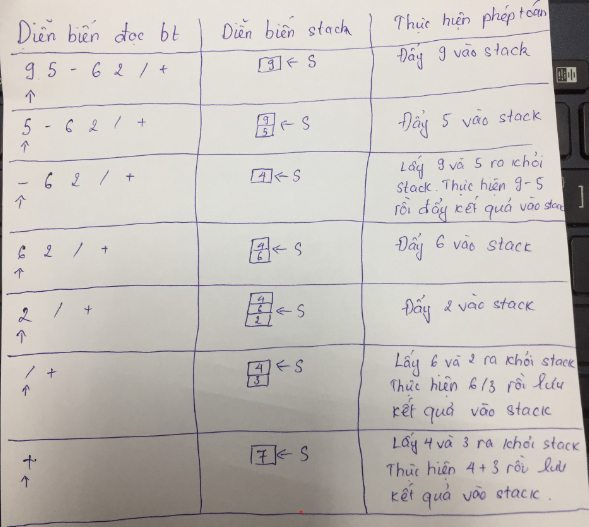 Diễn biến đọc bt
Diễn biến stack
Thực hiện phép toán
9 5 - 6 2 / +
↑
9 ← S
Đẩy 9 vào stack
5 - 6 2 / +
↑
9
5 ← S
Đẩy 5 vào stack
- 6 2 / +
↑
4 ← S
Lấy 9 và 5 ra khỏi
stack. Thực hiện 9-5
rồi đẩy kết quả vào stack
6 2 / +
↑
4
6 ← S
Đẩy 6 vào stack
2 / +
↑
4
6
2 ← S
Đẩy 2 vào stack
/ +
↑
4
3 ← S
Lấy 6 và 2 ra khỏi stack
Thực hiện 6/3 rồi lưu
kết quả vào stack
+
↑
7 ← S
Lấy 4 và 3 ra khỏi stack
Thực hiện 4+3 rồi lưu
kết quả vào stack.
]